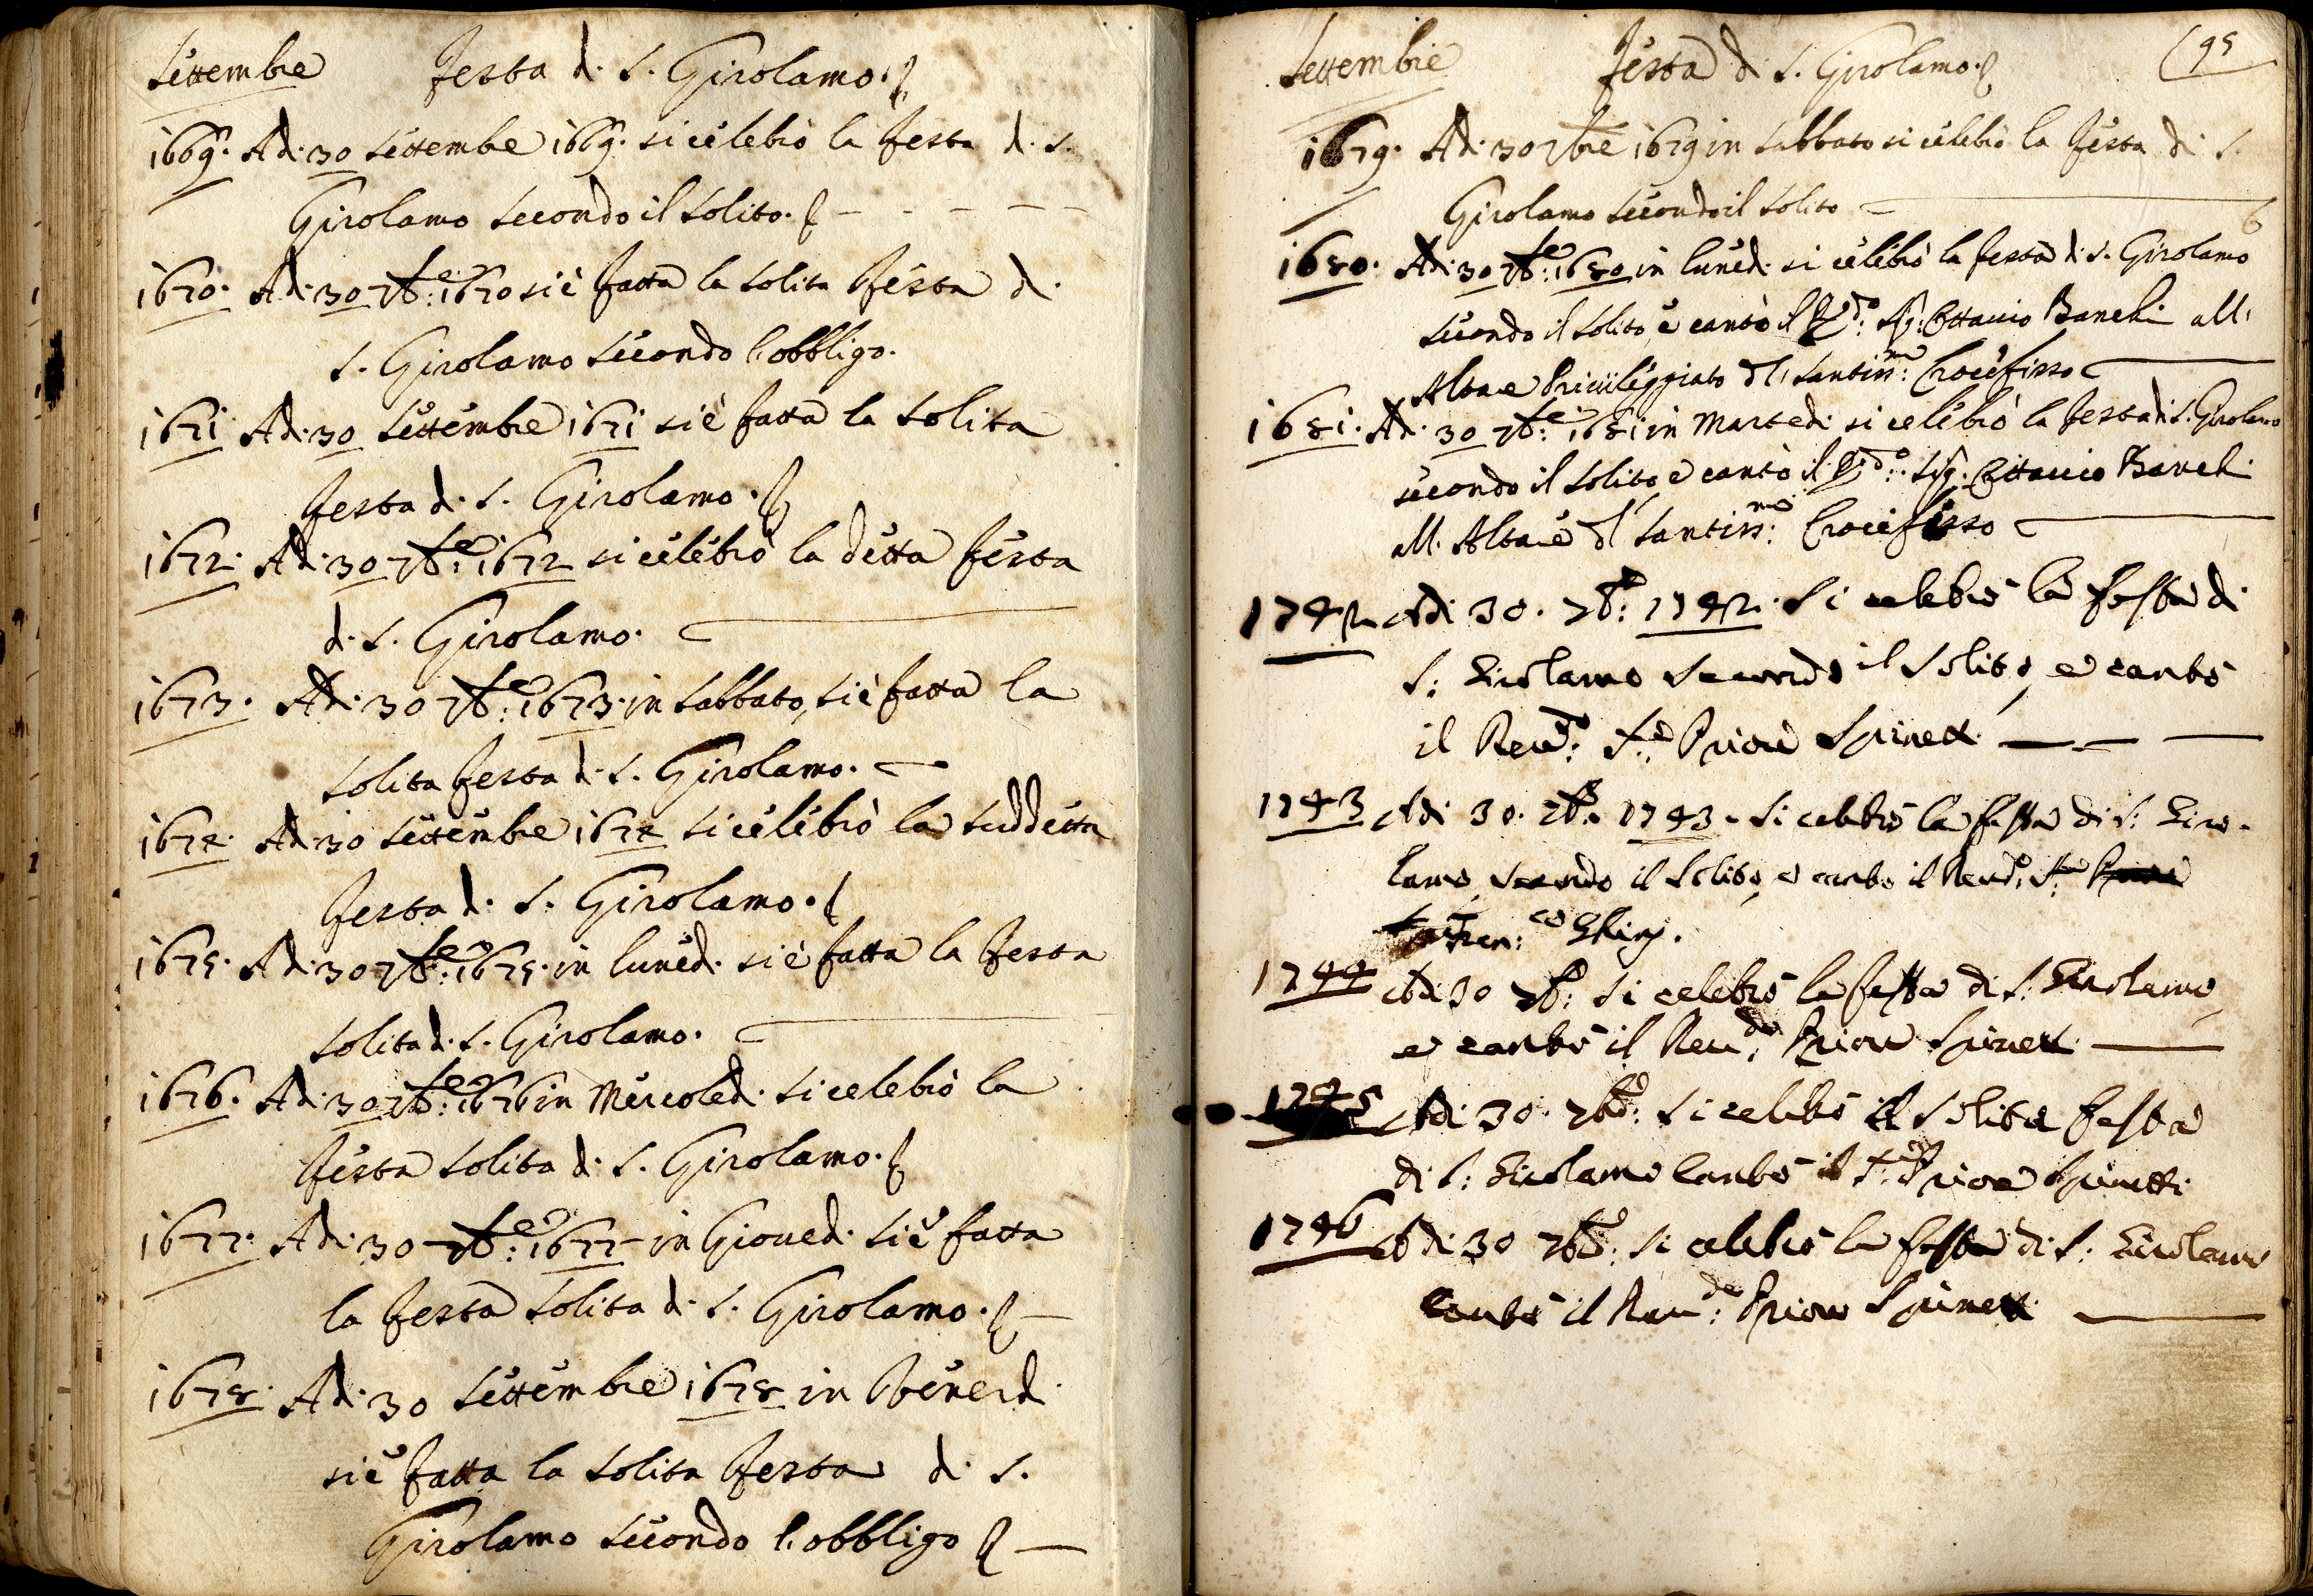 Settembre Festa di S. Girolamo.
1669. Adi 30 Settembre 1669. si celebrò la festa di S.
Girolamo secondo il solito.
1670. Adi 30 7bre: 1670 si è fatta la solita festa di
S. Girolamo secondo l'obbligo.
1671 Adi 30 Settembre 1671 si è fatta la solita
festa di S. Girolamo.
1672. Adi 30 7bre: 1672 si celebrò la detta festa
di S. Girolamo.
1673. Adi 30 7bre: 1673. in sabbato, si è fatta la
solita festa di S. Girolamo.
1674. Adi 30 Settembre 1674 si celebrò la suddetta
festa di S. Girolamo.
1675. Adi 30 7bre: 1675. in lunedi si è fatta la festa
solita di S. Girolamo.
1676. Adi 30 7bre: 1676 in Mercoledi si celebrò la
festa solita di S. Girolamo.
1677. Adi 30 7bre: 1677 in Giovedi si è fatta
la festa solita di S. Girolamo.
1678. Adi 30 Settembre 1678 in Venerdi
si è fatta la solita festa di S.
Girolamo secondo l'obbligo
Settembre Festa di S. Girolamo. 95
1679. Adi 30 7bre 1679 in sabbato si celebrò la festa di S.
Girolamo secondo il solito
1680. Adi 30 7bre: 1680 in lunedi si celebrò la festa di S. Girolamo
secondo il solito, e cantò il Rdo: Sig: Ottavio Banchi all'
Altare Privileggiato del Santissmo: Crocefisso
1681. Adi 30 7bre: 1681 in Martedi si celebrò la festa di S. Girolamo
secondo il solito e cantò il Rdo: Sig: Ottavio Banchi
all'Altare del Santissmo: Crocefisso
1742 Adi 30. 7b: 1742. Si celebrò la festa di
S: Girolamo secondo il solito, e cantò
il Revdo: Sr: Priore Spinetti
1743 Adi 30. 7b. 1743. Si celebrò la festa di S: Giro-
lamo, secondo il solito, e cantò il Revdo: Sr: Priore
Fran:co Ghinj.
1744 Adi 30 7b: Si celebrò la festa di S: Girolamo,
e cantò il Revdo: Priore Spinetti
1745 Adi 30. 7b: Si celebrò la solita festa
di S: Girolamo cantò il Sr: Priore Spinetti
1746 Adi 30 7b: Si celebrò la festa di S: Girolamo
cantò il Revdo: Priore Spinetti